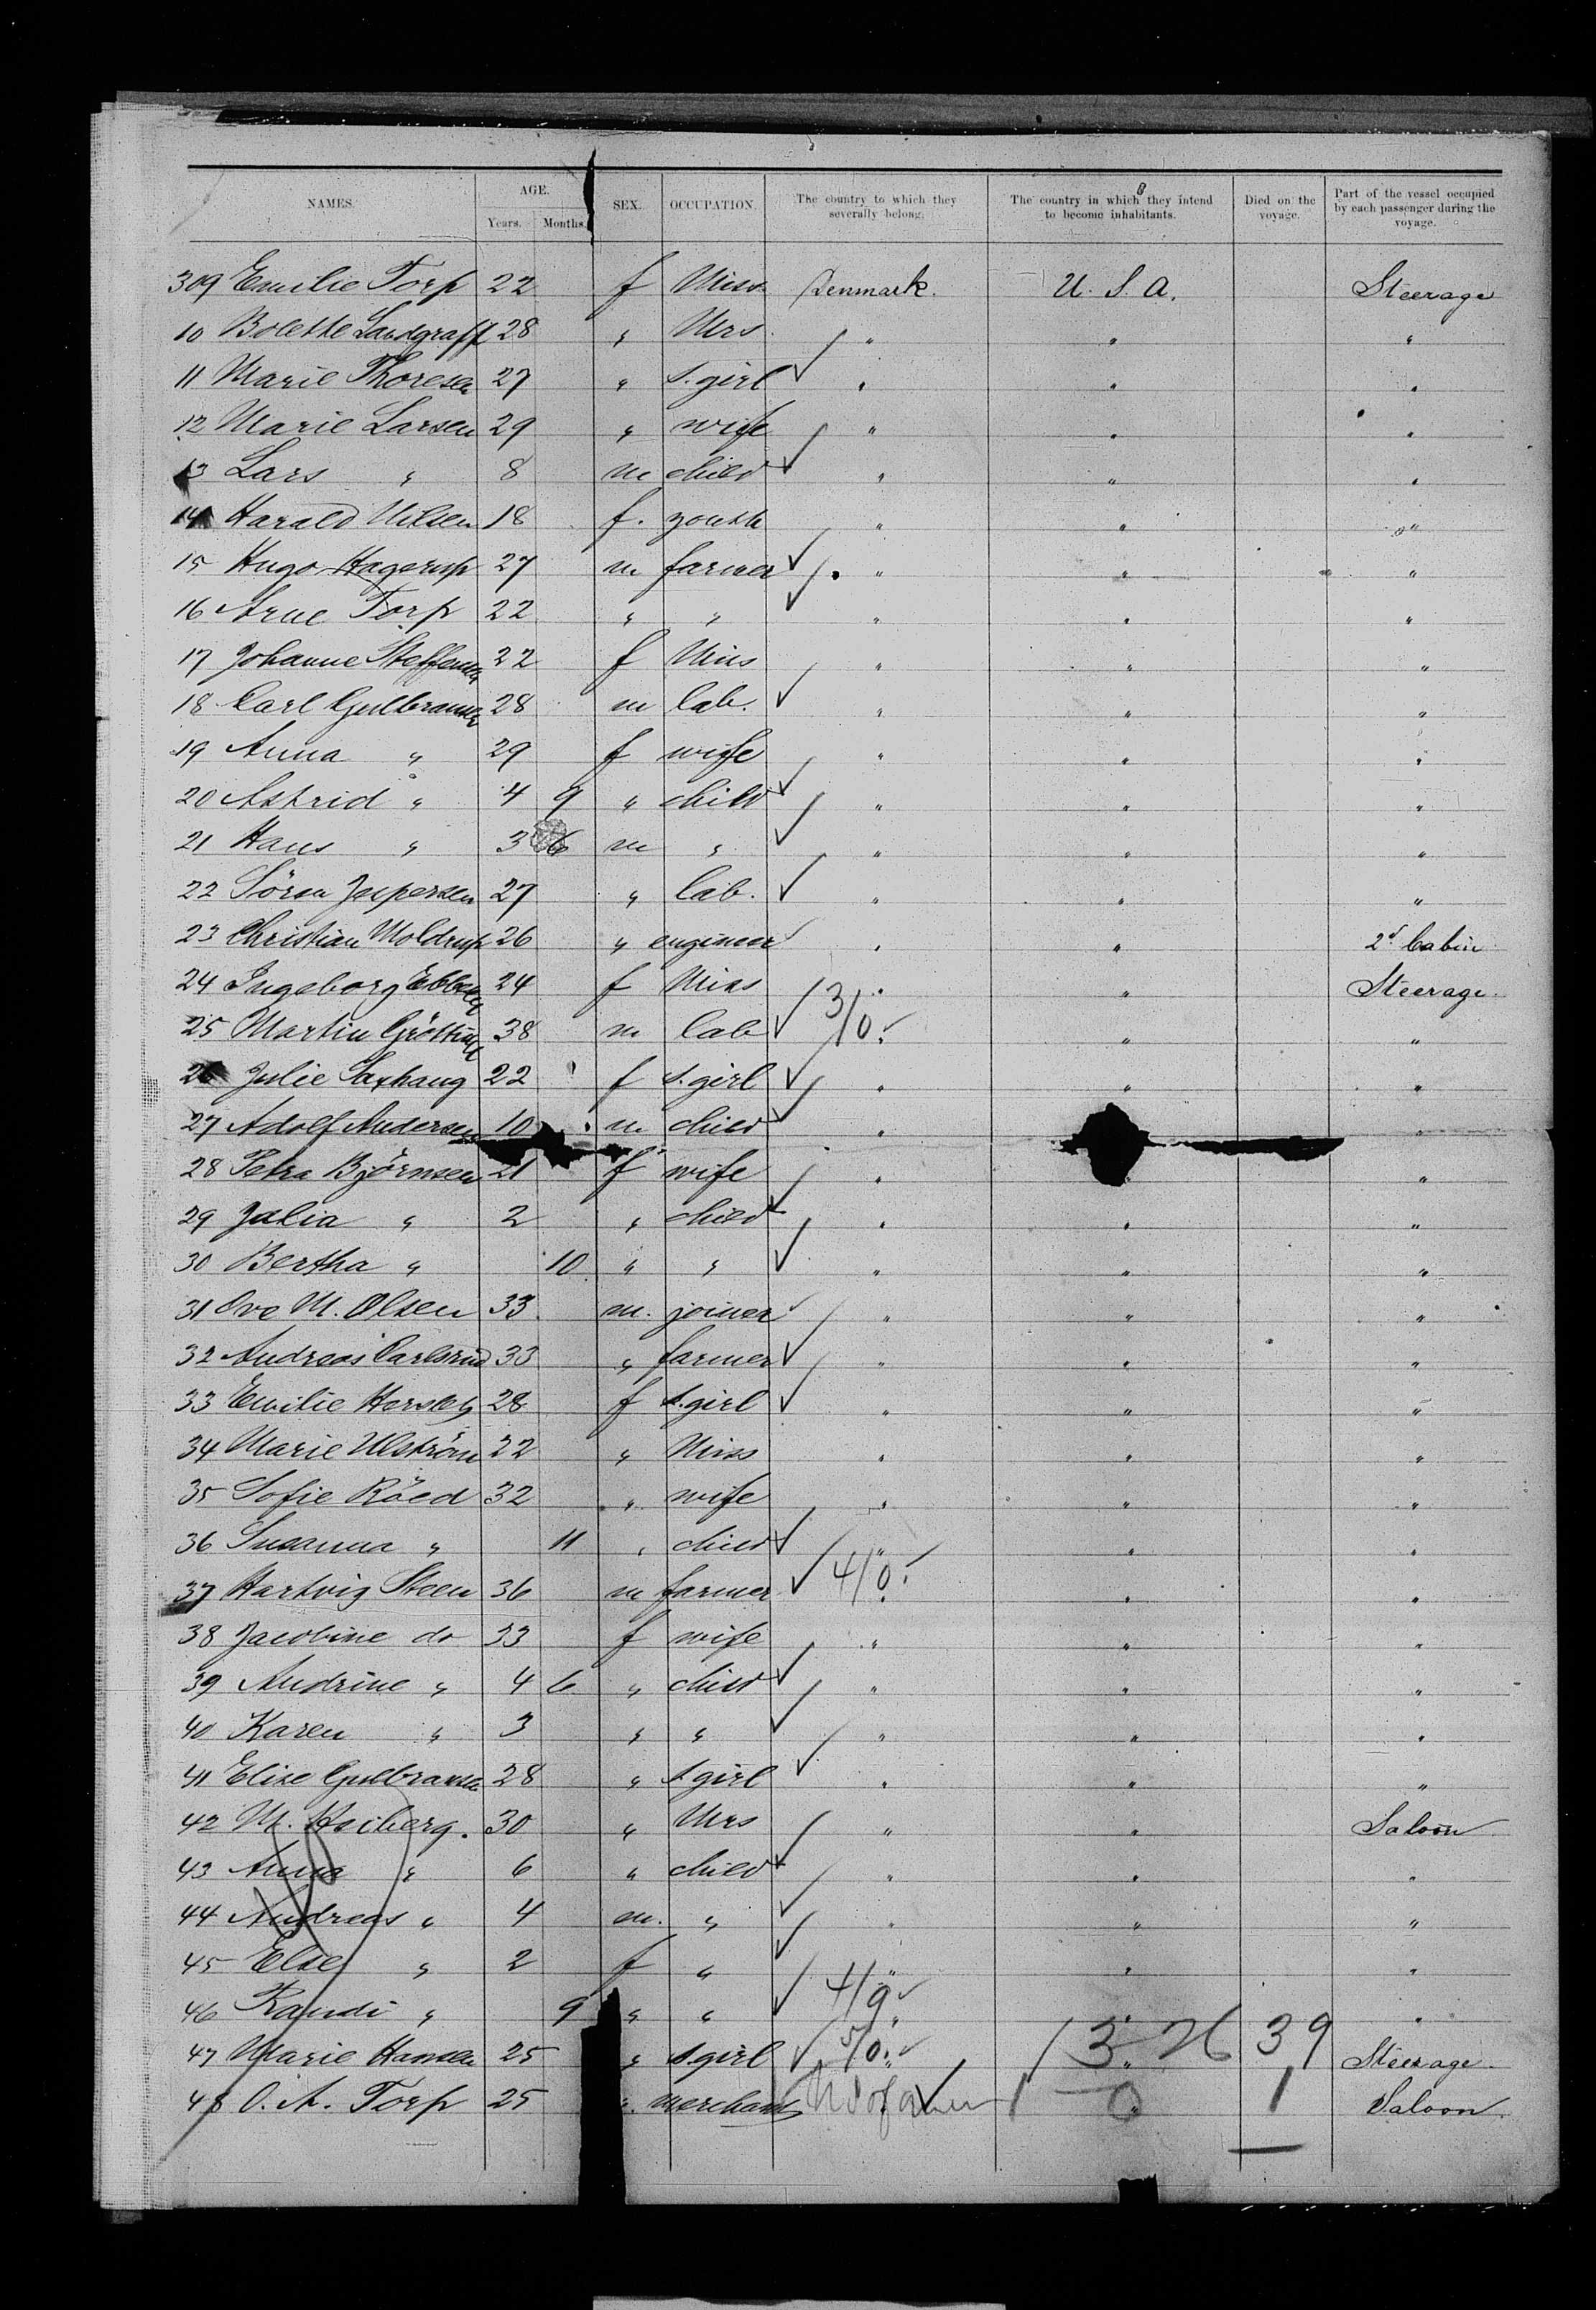 8
NAMES. AGE. Years. Months. SEX. OCCUPATION. The country to which they severally belong. The country in which they intend to become inhabitants. Died on the voyage. Part of the vessel occupied by each passenger during the voyage.
309 Emilie Torp 22 f Miss Denmark. U. S. A. Steerage
10 Bolette Landgraff 28 " Mrs " " "
11 Marie Thoresen 27 " s. girl " " "
12 Marie Larsen 29 " wife " " "
13 Lars " 8 m child " " "
14 Harald Nilsen 18 f. youth " " "
15 Hugo Hagerup 27 m farmer " " "
16 Arne Torp 22 " " " " "
17 Johanne Steffensen 22 f Miss " " "
18 Carl Gulbransen 28 m lab. " " "
19 Anna " 29 f wife " " "
20 Astrid " 4 9 " child " " "
21 Hans " 3 6 m " " " "
22 Sören Jespersen 27 " lab. " " "
23 Christian Moldrup 26 " engineer " " 2d Cabin
24 Ingeborg 24 f Miss " " Steerage
3/0
25 Martin 38 m lab " " "
26 Julie Saxhaug 22 f s. girl " " "
27 Adolf Andersen 10 m child " "
28 Petra Björnsen 21 f wife " " "
29 Julia " 2 " child " " "
30 Bertha " 10 " " " " "
31 Ove M. Olsen 33 m. joiner " " "
32 Andreas Carlsrud 33 " farmer " " "
33 Emilie Hersleb 28 f s. girl " " "
34 Marie Ulström 22 " Miss " " "
35 Sofie Röed 32 " wife " " "
36 Susanna " 11 " child " " "
37 Hartvig Steen 36 m farmer 4/0 " " "
38 Jacobine do 33 f wife " " "
39 Andrine " 4 6 " child " " "
40 Karen " 3 " " " " "
41 Elise Gulbransen 28 " s. girl " " "
42 M. Heiberg. 30 " Mrs " " Saloon
43 Anna " 6 " child " " "
44 Andreas " 4 m. " " " "
45 Else " 2 f " " " "
46 Randi " 9 " " 4/9 " " "
47 Marie Hansen 25 " s. girl 5/0 " 13 26 39 Steerage
48 O. A. Torp 25 " merchant 1 0 1 Saloon